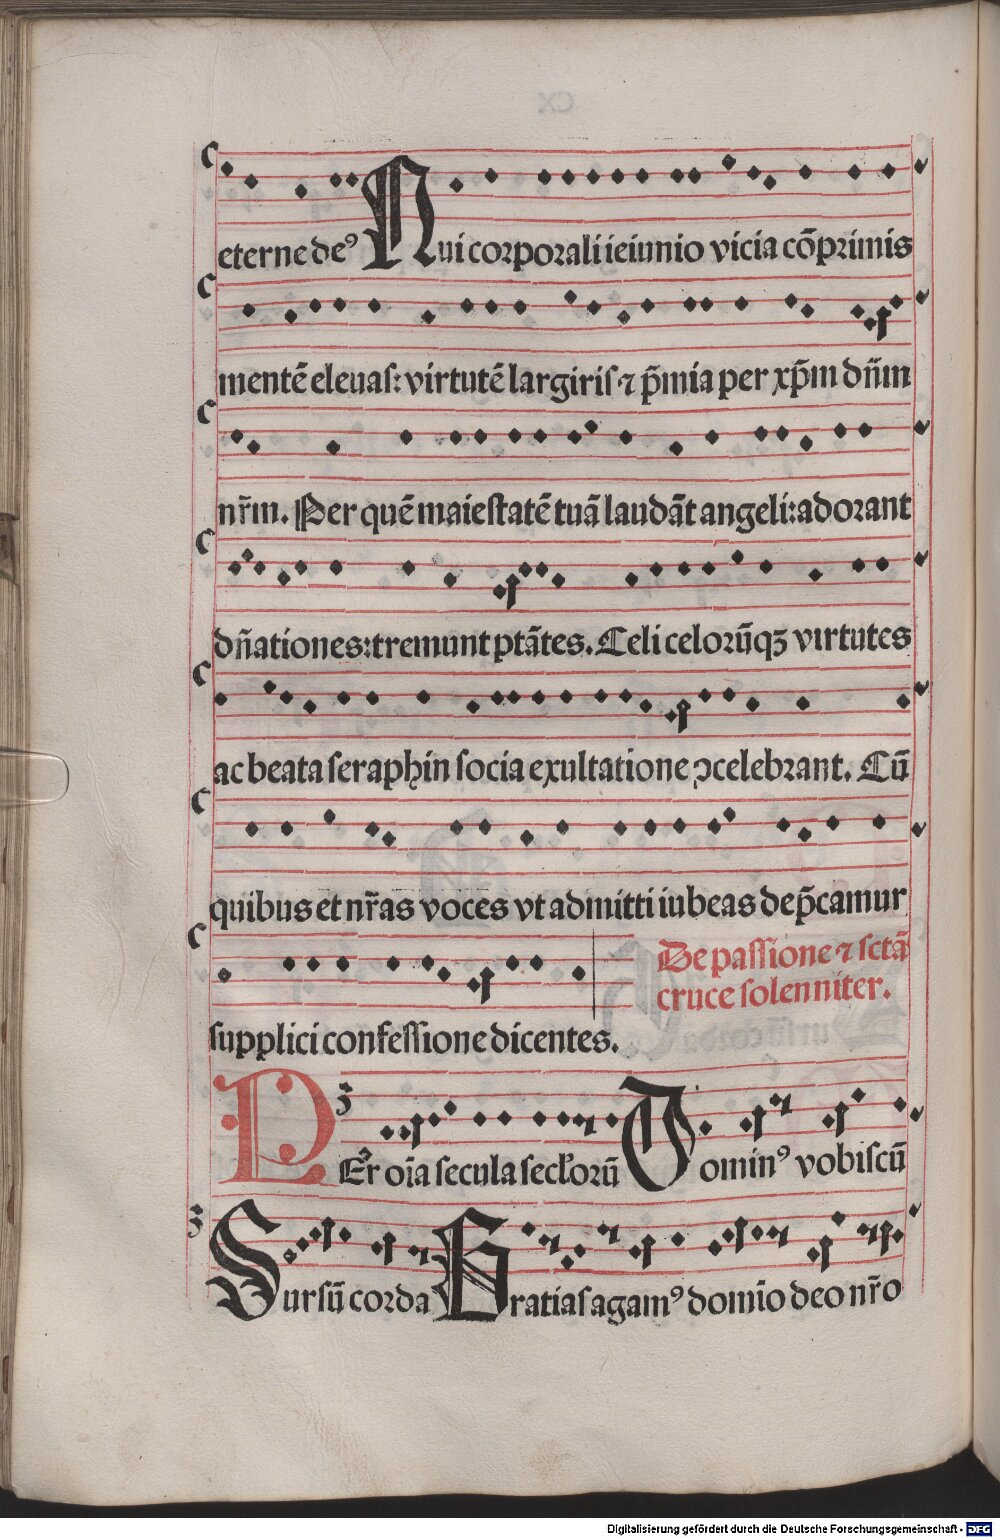 eterne deꝰ Qui corporali ieiunio vicia cōprimis
mentē eleuas: virtutē largiris ⁊ p̄mia per xp̄m dn̄m
nr̄m. Per quē maiestatē tuā laudāt angeli: adorant
dn̄ationes: tremunt ptātes. Celi celorūqꝫ virtutes
ac beata seraphin socia exultatione ↄcelebrant. Cū
quibus et nr̄as voces vt admitti iubeas dep̄camur
De passione ⁊ sctā
cruce solenniter.
supplici confessione dicentes.
PEr oīa secula seclorū Dominꝰ vobiscū
Sursū corda Gratias agamꝰ domīo deo nr̄o
Digitalisierung gefördert durch die Deutsche Forschungsgemeinschaft - DFG